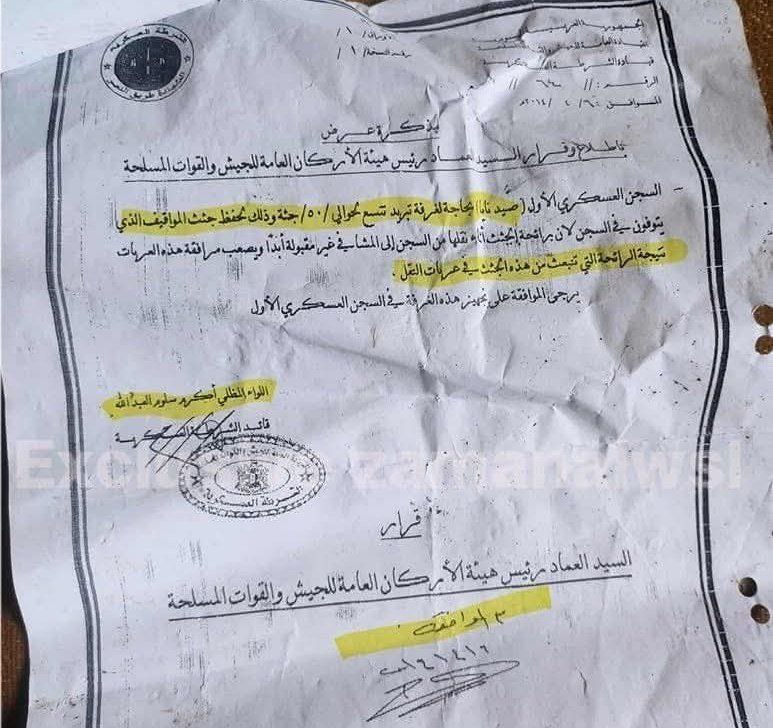 الشرطة العسكرية
الجمهورية العربية
القيادة العامة للجيش والقوات
قيادة الشرطة العسكرية
الرقم: //
الموافق: / /٢٠١٤م
رقم النسخة/ ١ /
مذكرة عرض
باطلاع وقرار السيد العماد رئيس هيئة الأركان العامة للجيش والقوات المسلحة
- السجن العسكري الأول (صيد نايا) بحاجة لغرفة تبريد تتسع لحوالي /٥٠/ جثة وذلك لحفظ جثث المواقيف الذي
يتوفون في السجن لان رائحة الجثث أثناء نقلها من السجن إلى المشافي غير مقبولة أبدًا ويصعب مرافقة هذه العربات
نتيجة الرائحة التي تنبعث من هذه الجثث في عربات النقل .
يرجى الموافقة على تجهيز هذه الغرفة في السجن العسكري الأول
اللواء المظلي أكرم سلوم العبد الله
قائد الشرطة العسكرية
الشرطة العسكرية
Exclusive zamanalwsl
قرار
السيد العماد رئيس هيئة الأركان العامة للجيش والقوات المسلحة